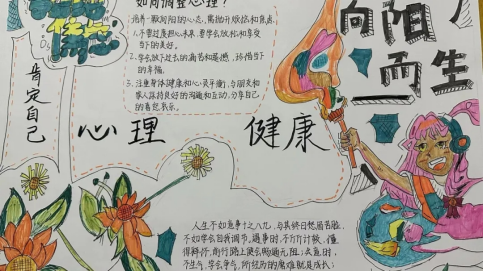 如何调整心理?
培养一颗向阳的心态,需抛开烦恼和焦虑。
1.不要过度担心未来,要学会放松和享受
当下的美好。
2.学会放下过去的痛苦和遗憾,珍惜当下
的幸福。
3.注重身体健康和心灵平衡,与朋友和
家人保持良好的沟通和互动,分享自己
的喜怒哀乐。
向阳
而生
肯定自己
心理 健康
人生不如意事十之八九,与其终日愁眉苦脸,
不如学会自我调节,遇事时,不斤斤计较,懂
得释怀,前行路上便会畅通无阻;失意时,
不生气,学会争气,所经历的磨难就是成长;